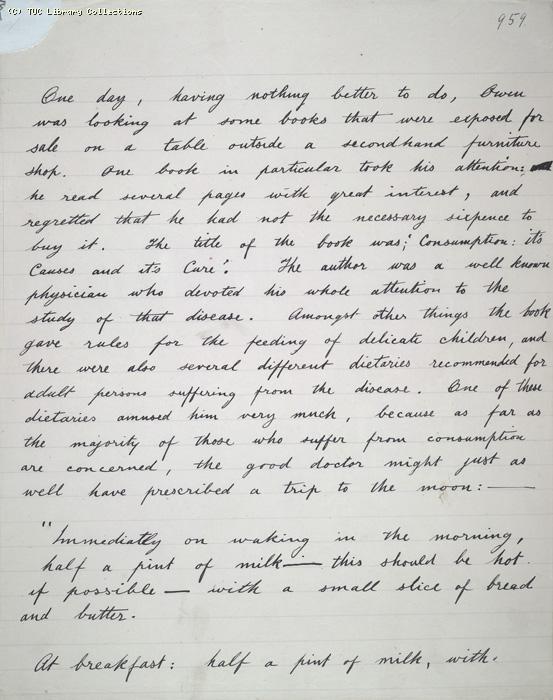 (C) TUC Library Collections
959
One day, having nothing better to do, Owen
was looking at some books that were exposed for
sale on a table outside a secondhand furniture
shop. One book in particular took his attention:
he read several pages with great interest, and
regretted that he had not the necessary sixpence to
buy it. The title of the book was; "Consumption: its
Causes and its Cure". The author was a well known
physician who devoted his whole attention to the
study of that disease. Amongst other things the book
gave rules for the feeding of delicate children, and
there were also several different dietaries recommended for
adult persons suffering from the disease. One of these
dietaries amused him very much, because as far as
the majority of those who suffer from consumption
are concerned, the good doctor might just as
well have prescribed a trip to the moon: —
"Immediately on waking in the morning,
half a pint of milk — this should be hot
if possible — with a small slice of bread
and butter.
At breakfast: half a pint of milk, with